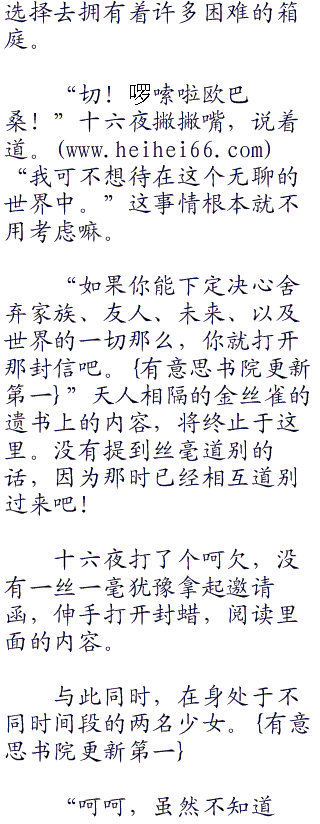 选择去拥有着许多困难的箱
庭。
“切！啰嗦啦欧巴
桑！”十六夜撇撇嘴，说着
道。(www.heihei66.com)
“我可不想待在这个无聊的
世界中。”这事情根本就不
用考虑嘛。
“如果你能下定决心舍
弃家族、友人、未来、以及
世界的一切那么，你就打开
那封信吧。{有意思书院更新
第一}”天人相隔的金丝雀的
遗书上的内容，将终止于这
里。没有提到丝毫道别的
话，因为那时已经相互道别
过来吧！
十六夜打了个呵欠，没
有一丝一毫犹豫拿起邀请
函，伸手打开封蜡，阅读里
面的内容。
与此同时，在身处于不
同时间段的两名少女。{有意
思书院更新第一}
“呵呵，虽然不知道